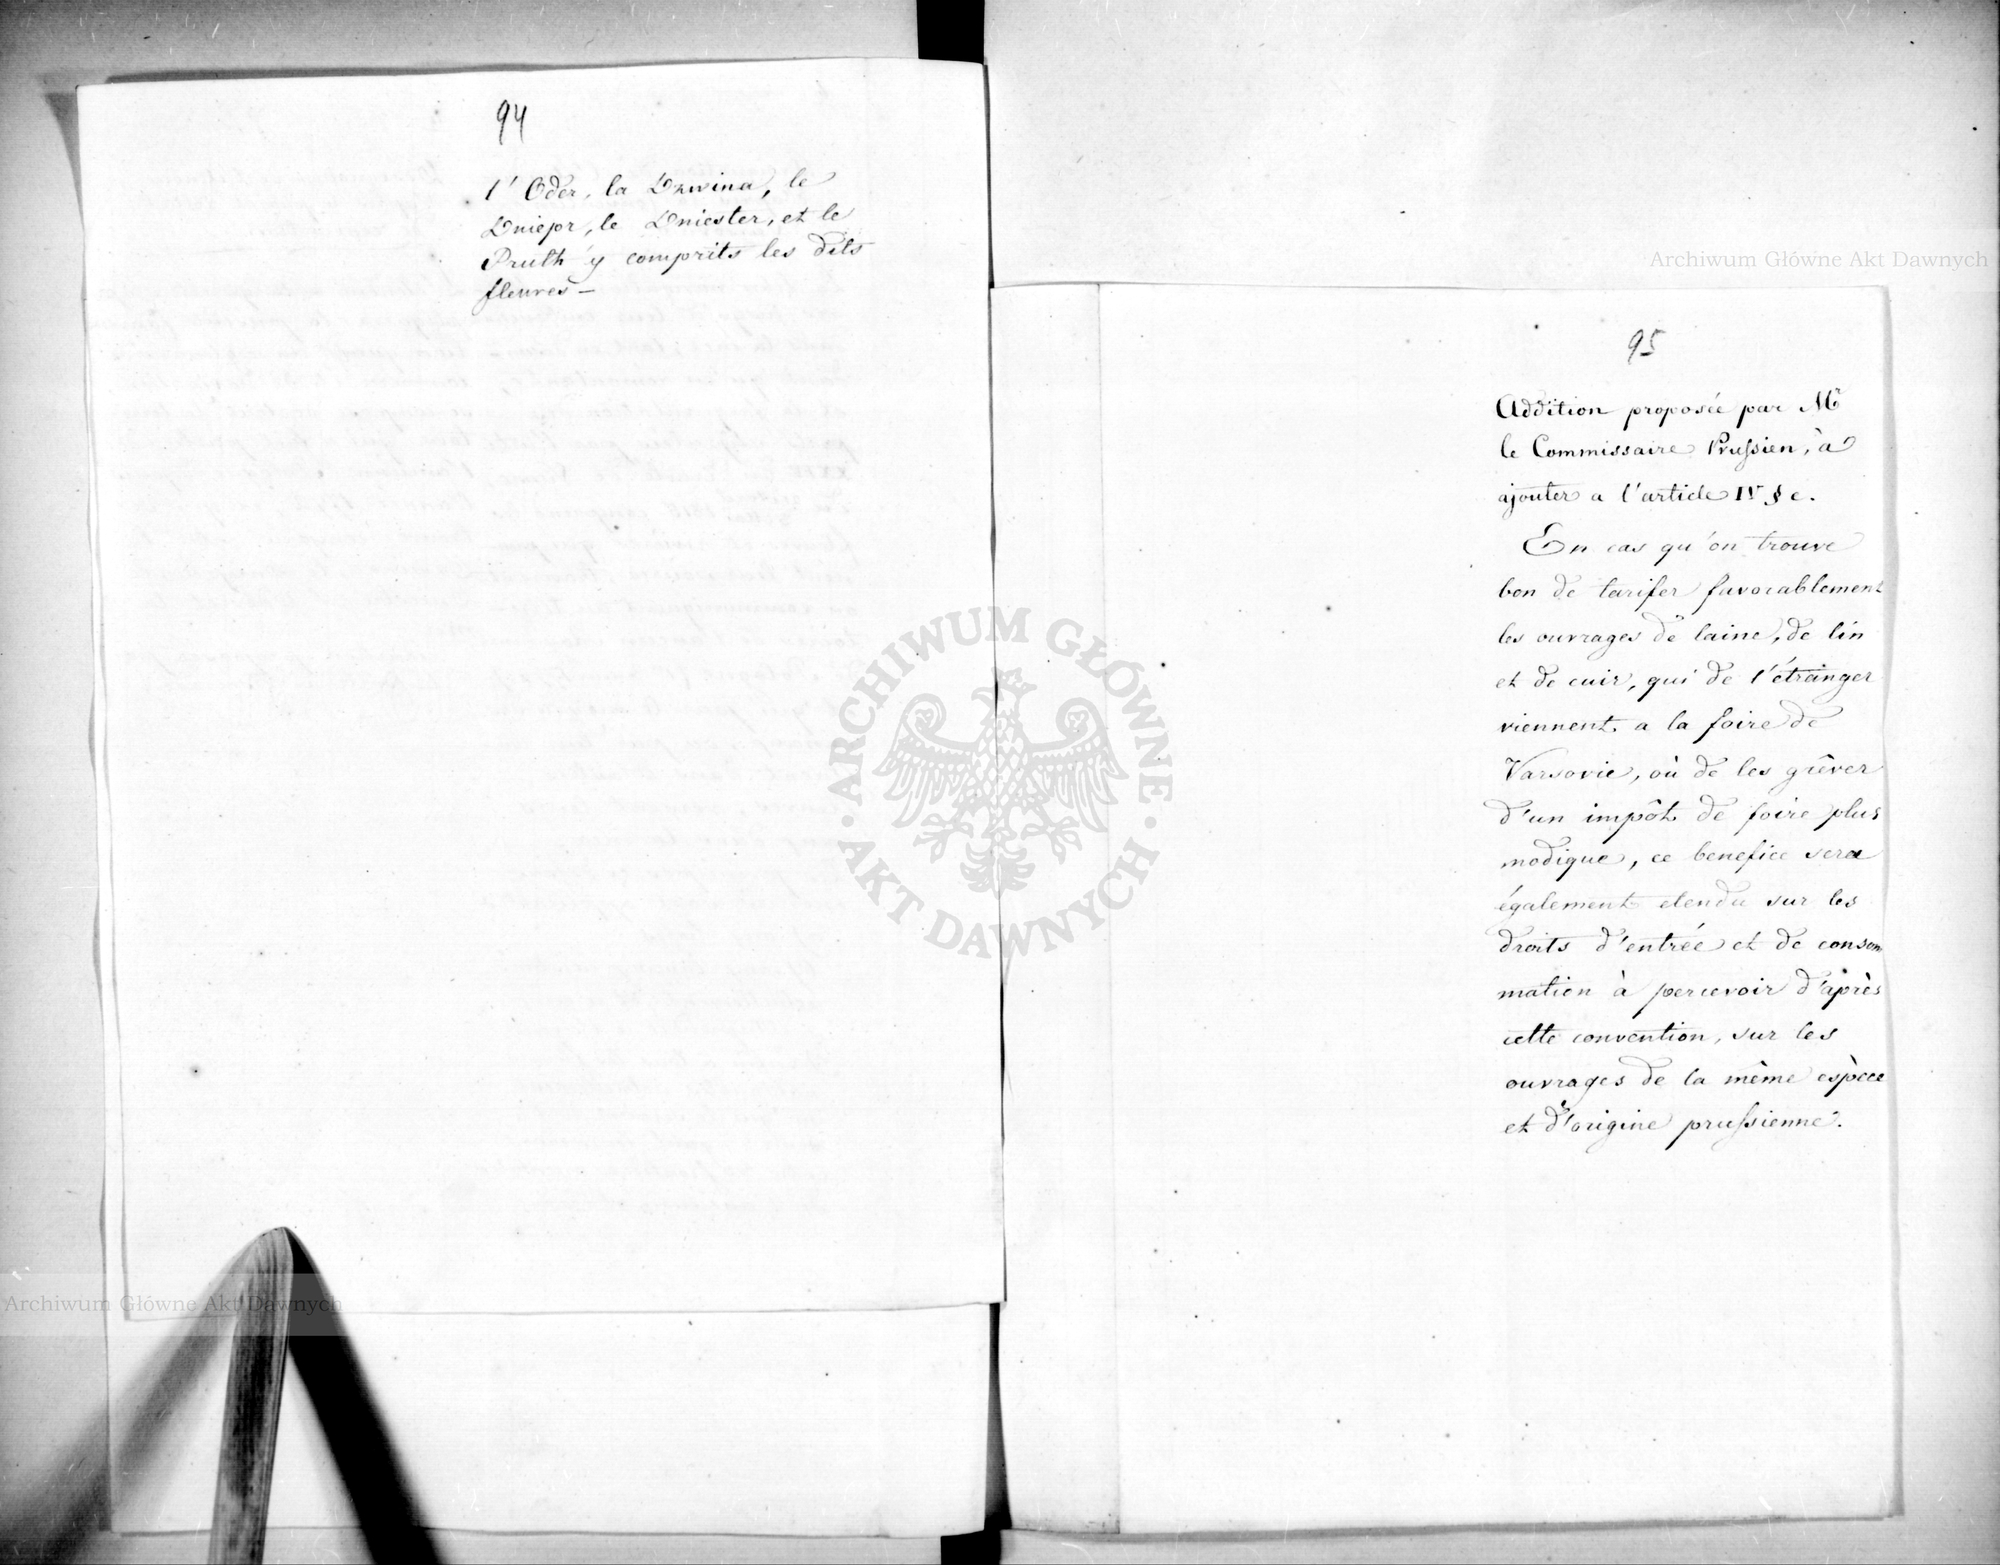 94
l'Oder, la Dzwina, le
Dniepr, le Dniester, et le
Pruth y comprits les dits
fleuves —
95
Addition proposée par Mr
le Commissaire Prussien, à
ajouter a l'article IV § c.
En cas qu'on trouve
bon de tarifer favorablement
les ouvrages de laine, de lin
et de cuir, qui de l'étranger
viennent a la foire de
Varsovie, où de les grêver
d'un impôt de foire plus
modique, ce benefice sera
également etendu sur les
droits d'entrée et de consom
mation à percevoir d'après
cette convention, sur les
ouvrages de la même espèce
et d'origine prussienne.
ARCHIWUM GŁÓWNE
AKT DAWNYCH
Archiwum Główne Akt Dawnych
Archiwum Główne Akt Dawnych